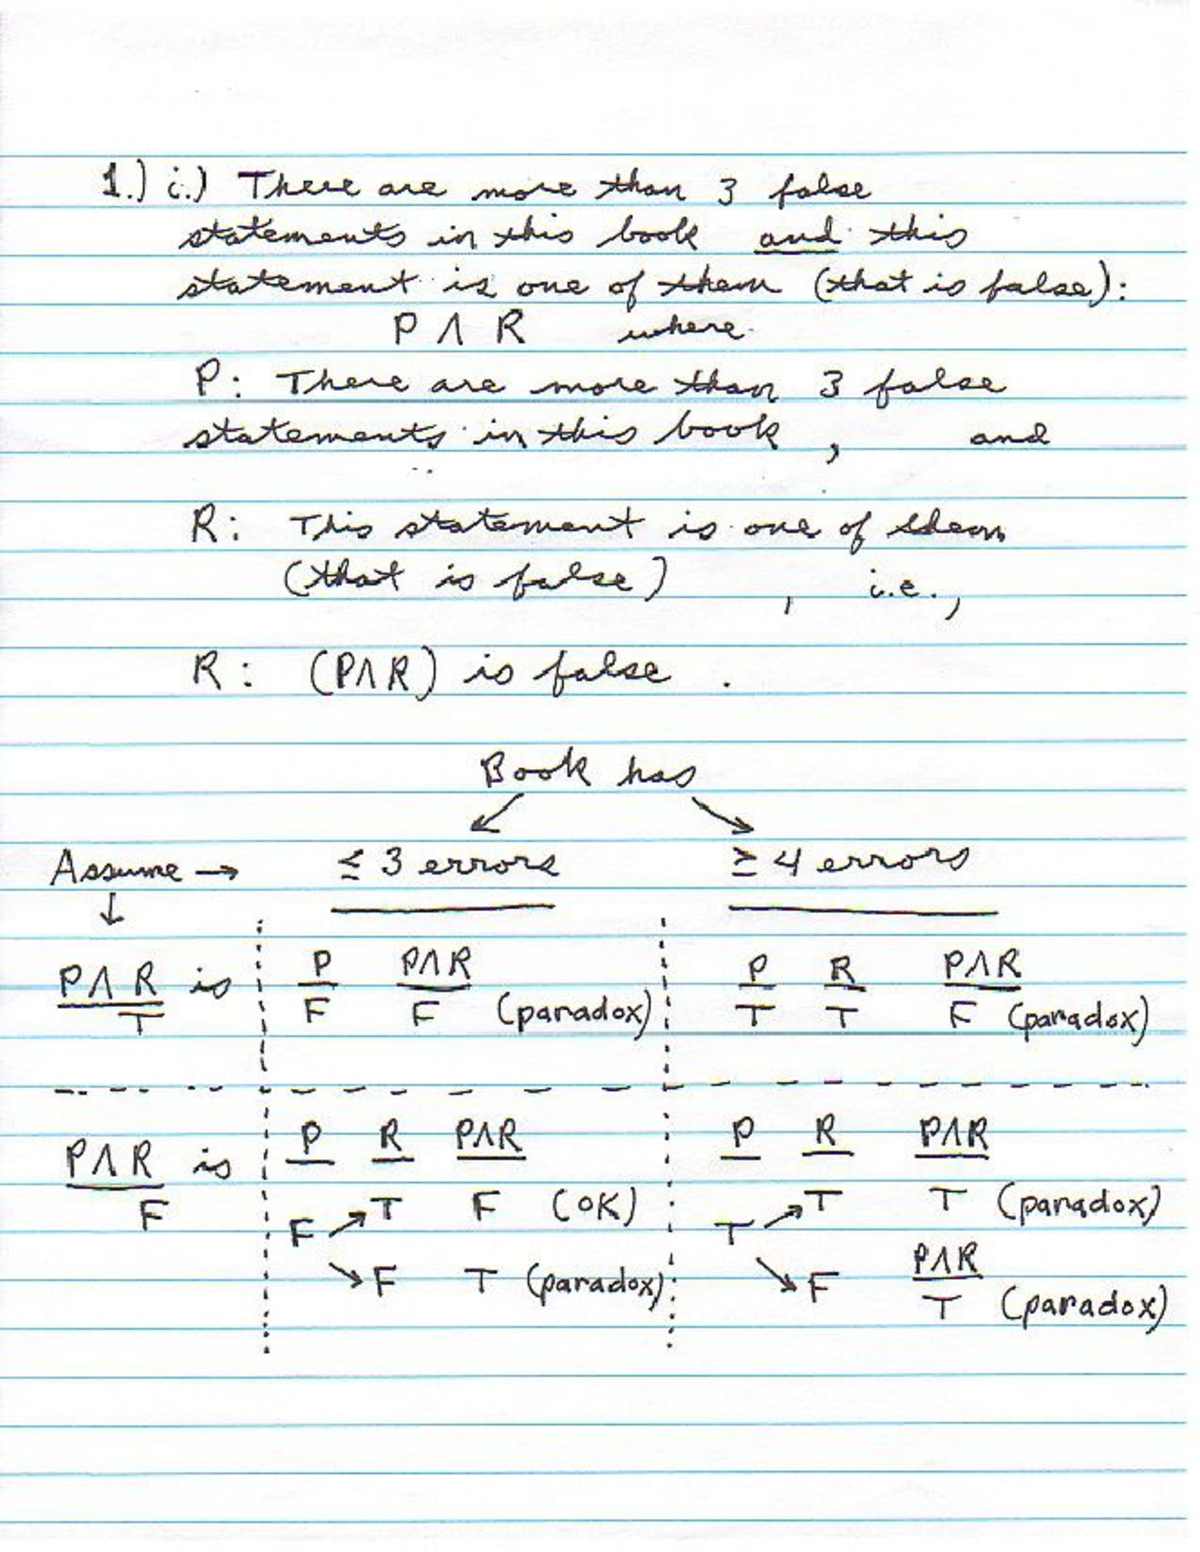 1.) i.) There are more than 3 false
statements in this book and this
statement is one of them (that is false):
P ∧ R where
P: There are more than 3 false
statements in this book, and
R: This statement is one of them
(that is false), i.e.,
R: (P∧R) is false.
Book has
↙ ↘
Assume → ≤ 3 errors ≥ 4 errors
↓
P P∧R P R P∧R
P ∧ R is
T F F (paradox) T T F (paradox)
P R P∧R P R P∧R
P ∧ R is
F T F (OK) T T (paradox)
F ↗ T ↗
P∧R
↘ F T (paradox) ↘ F T (paradox)